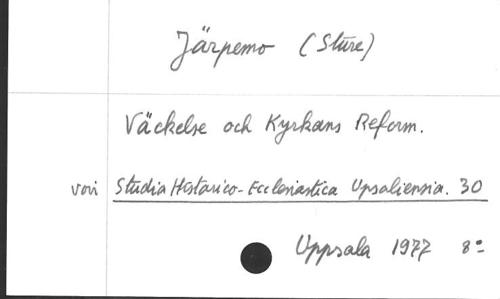 Järpemo (Sture)
Väckelse och Kyrkans Reform.
voir Studia Historico-Ecclesiastica Upsaliensia. 30
Uppsala 1977 8º